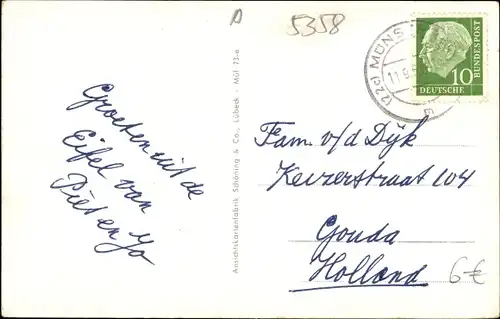 5358
Groeten uit de
Eifel van
Piet en Jo
Ansichtskartenfabrik Schöning & Co., Lübeck · Mül 73-a
(22c) MÜNS
11.8.
10
DEUTSCHE
BUNDESPOST
Fam. v/d Dijk
Keizerstraat 104
Gouda
Holland
6€